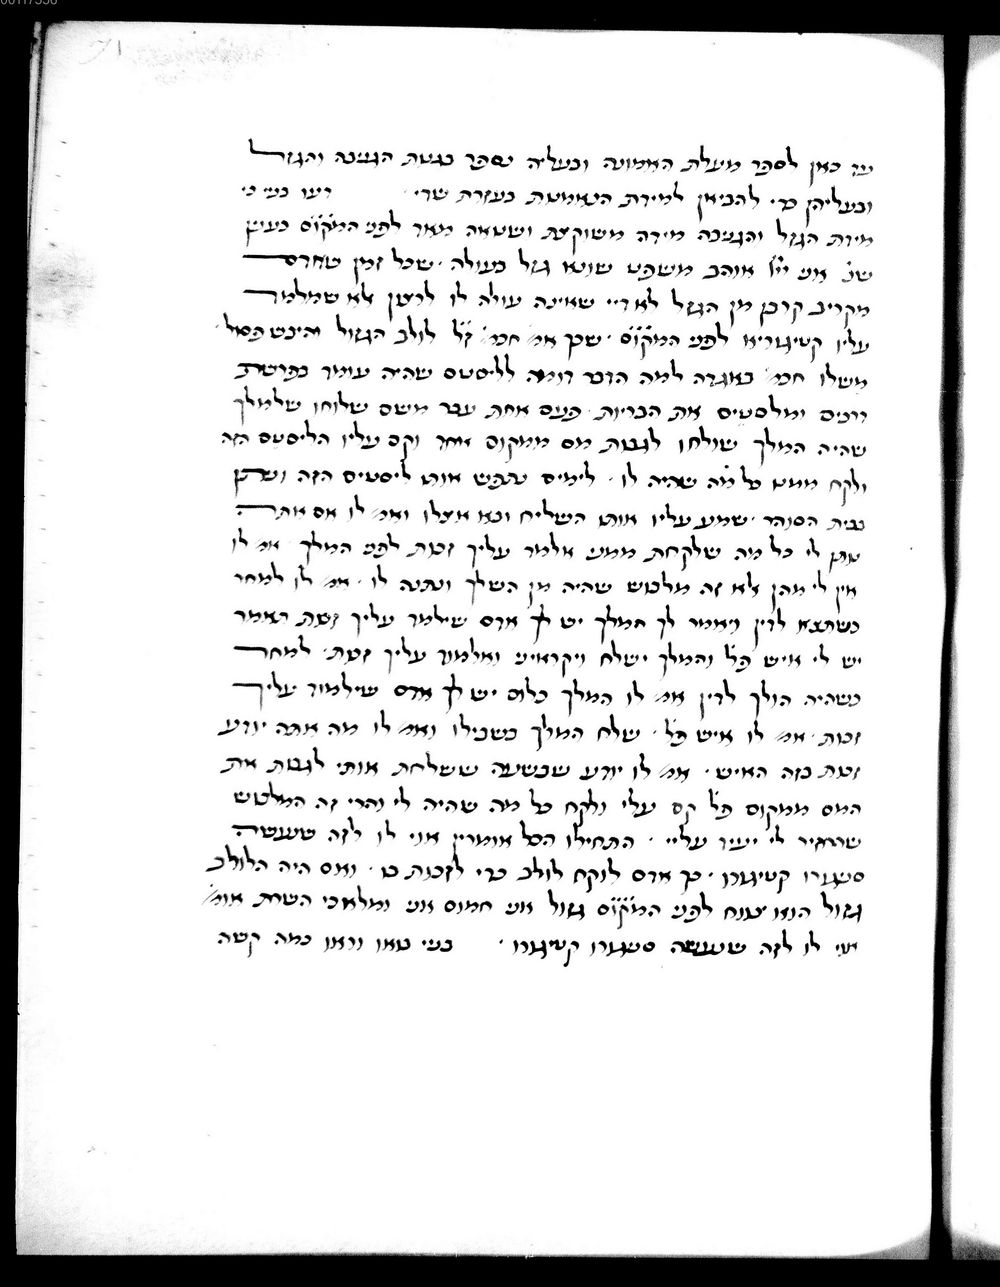 עד כאן לספר מעלת האמונה ובעליה נספר בגנות הגניבה והגזל
ובעליהן כדי להביאן למידת הנאמנות בעזרת שדי דעו בני כי
מידת הגזל והגניבה מידה משוקצת ושנואה מאד לפני המקום כענין
שנ' אני ייי אוהב משפט שונא גזל בעולה . שכל זמן שאדם
מקריב קרבן מן הגזל לא דיי שאינה עולה לו לרצון אלא שמלמד
עליו קטיגוריא לפני המקום . שכך אמ' חכמ' ז"ל לולב הגזול והיבש פסול .
משלו חכמ' באגדה למה הדבר דומה לליסטס שהיה עומד בפרשת
דרכים ומלסטיס את הבריות . פעם אחת עבר משם שלוחו שלמלך
שהיה המלך שולחו לגבות מס ממקום אחד וקם עליו הליסטס הזה
ולקח ממנו כל מה שהיה לו . לימים נתפש אותו ליסטיס הזה ונתן
בבית הסוהר . שמע עליו אותו השליח ובא אצלו ואמ' לו אם אתה
נותן לי כל מה שלקחת ממני אלמד עליך זכות לפני המלך . אמ' לו
אין לי מהן אלא זה מלבוש שהיה מן השלך ונתנה לו . אמ' לו למחר
כשתצא לדין ויאמר לך המלך יש לך אדם שילמד עליך זכות תאמר
יש לי איש פל' והמלך ישלח ויקראיני ואלמוד עליך זכות . למחר
כשהיה הולך לדין אמ' לו המלך כלום יש לך אדם שילמוד עליך
זכות . אמ' לו איש פל' . שלח המלך בשבילו ואמ' לו מה אתה יודע
זכות בזה האיש . אמ' לו יודע שבשעה ששלחת אותי לגבות את
המס ממקום פל' קם עלי ולקח כל מה שהיה לי והרי זה המלבוש
שהותיר לי יעיד עליי . התחילו הכל אומרין אוי לו לזה שנעשה
סניגורו קטיגורו . כך אדם לוקח לולב כדי לזכות בו . ואם היה הלולב
גזול הוא צווח לפני המקום גזול אני חמוס אני ומלאכי השרת אומ'
אוי לו לזה שנעשה סניגורו קטיגורו . בני בואו וראו כמה קשה